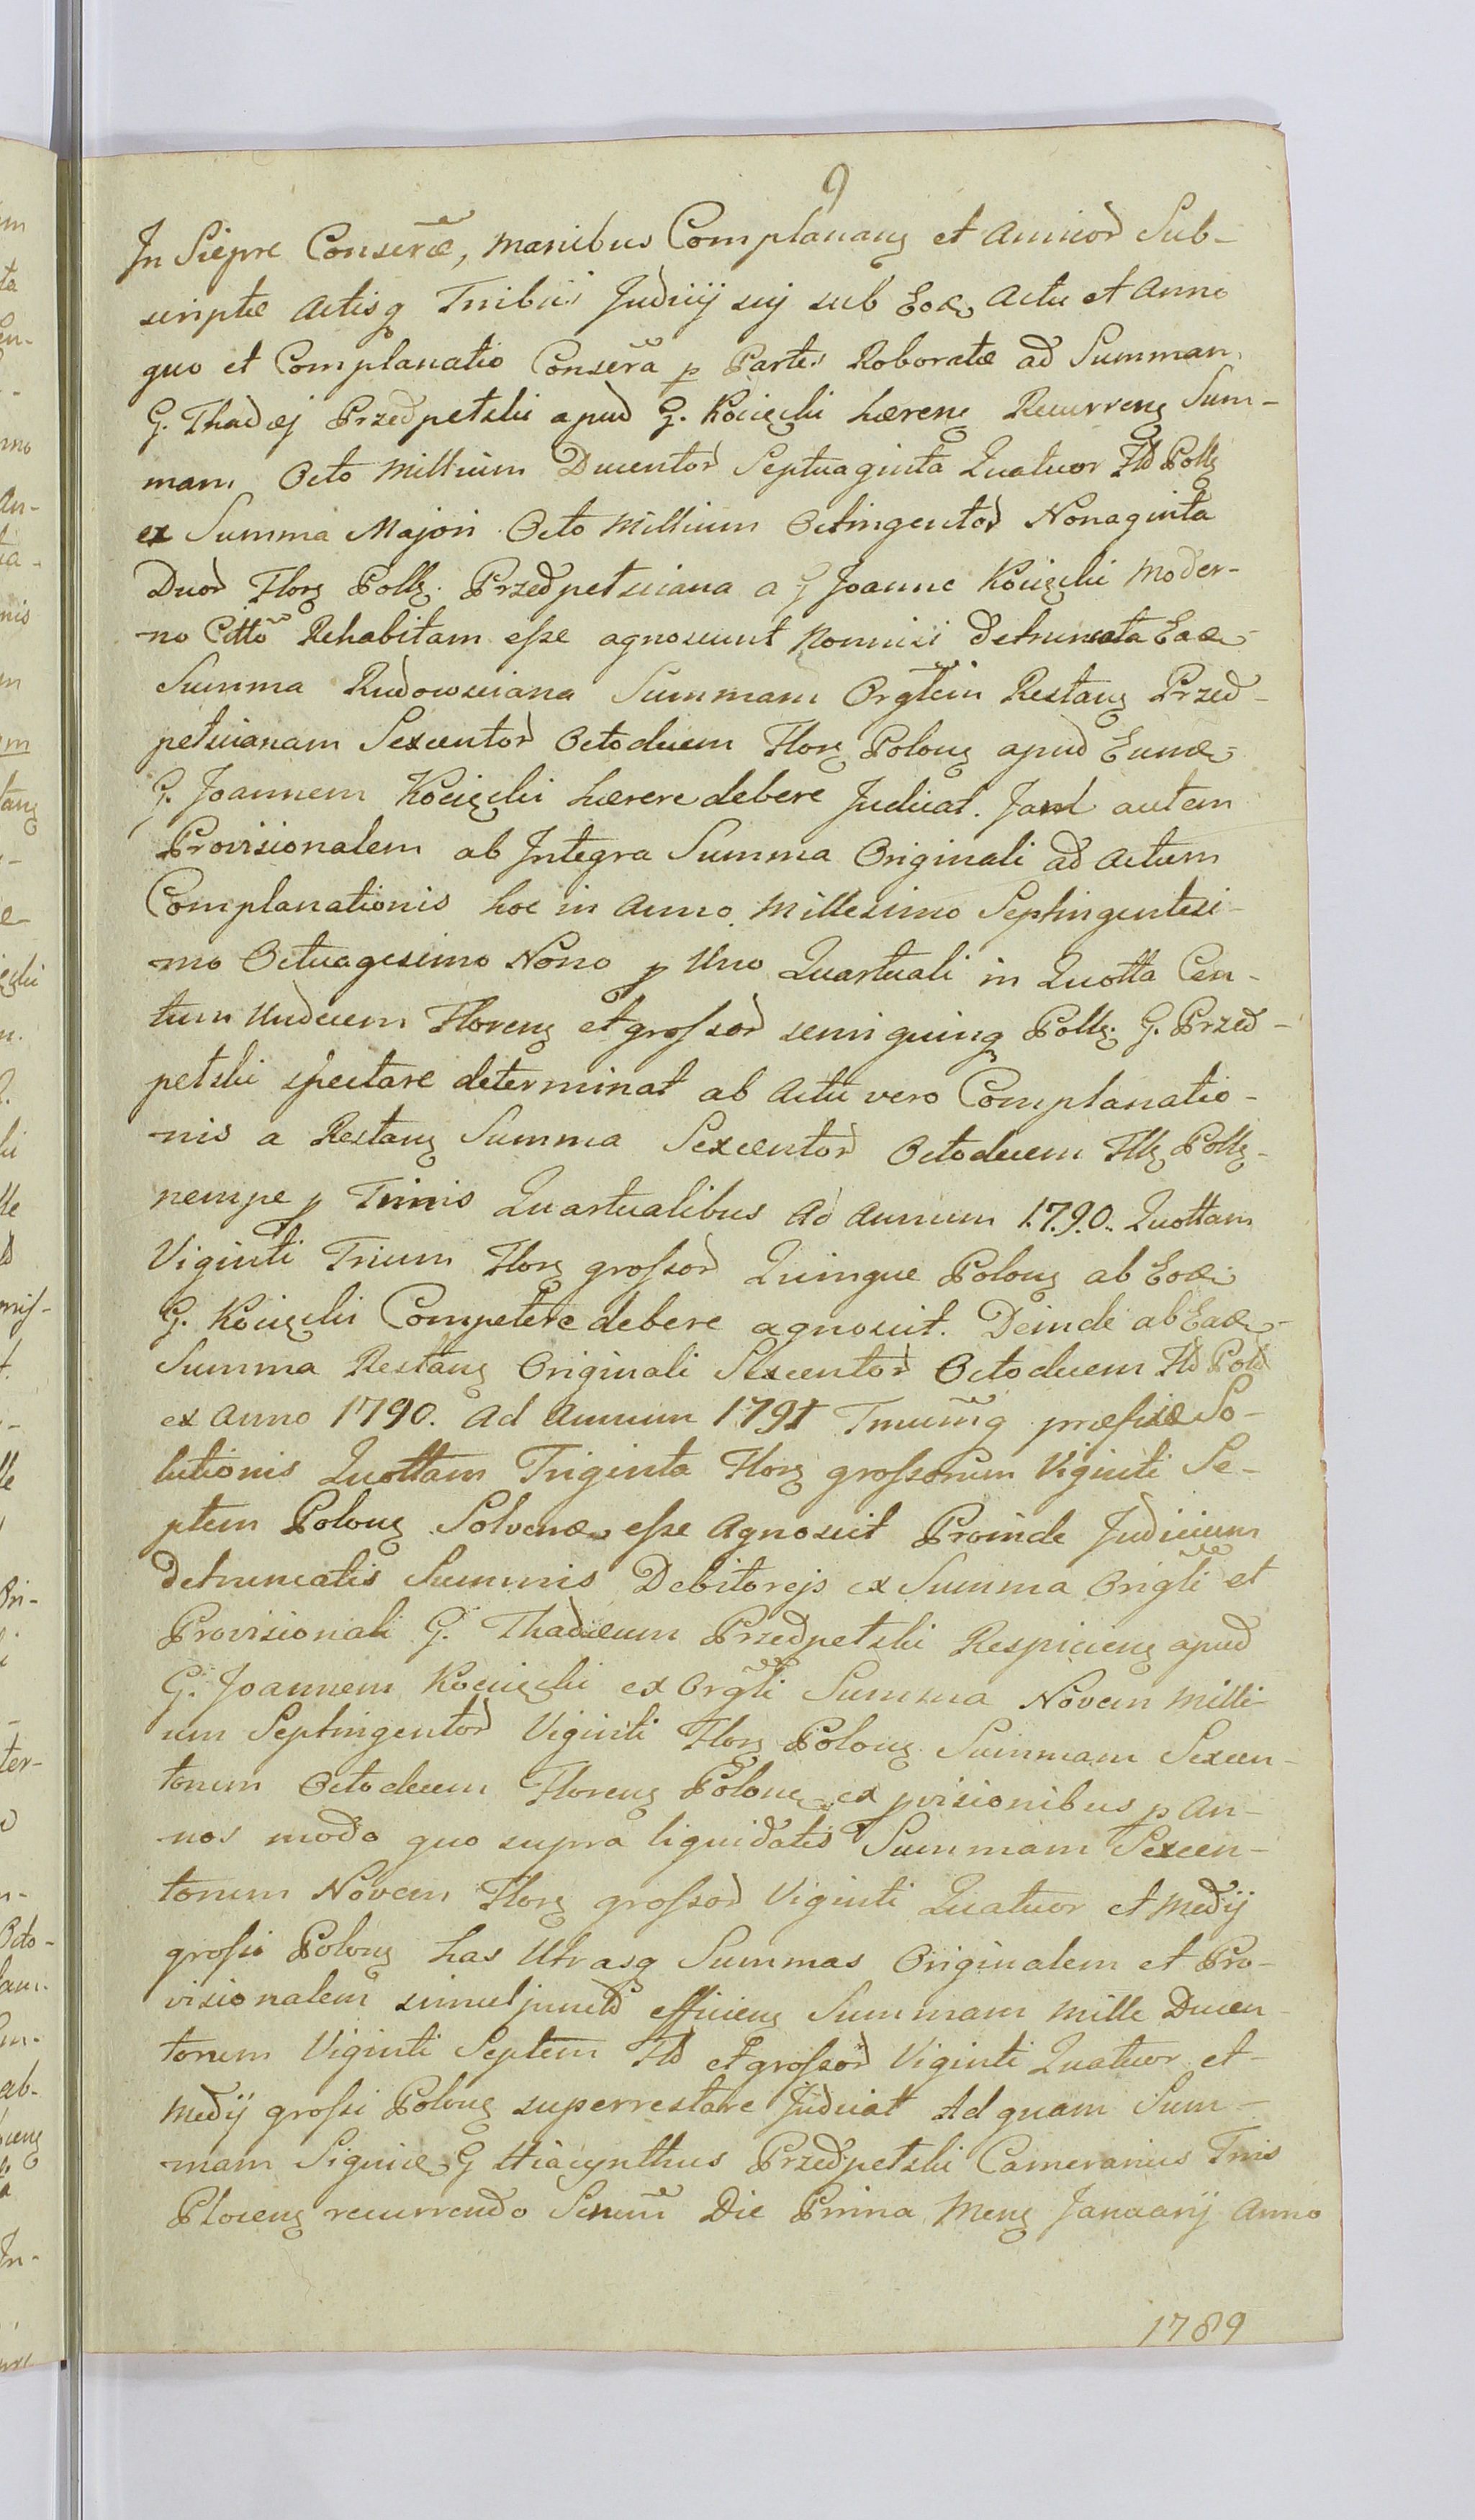 9
In Siepre Conserae, manibus Complanang et Amicod Sub-
scriptae Actisq Tribus Judicij sui sub Eode Actu et Anno
quo et Complanatio Consera p Partes Roborata ad Summam
G. Thadaej Przedpetski apud G. Kocięcki haereng Recurreng Sum-
mam Octo Millium Ducentod Septuaginta Quatuor Fld Pollg
ex Summa Majori Octo Millium Octingentod Nonaginta
Duod Florg Pollg. Przedpetsciana a G Joanne Kocięcki Moder-
no Citto Rehabitam esse agnoscunt Nonnisi detruncata Eade
Summa Rudowsciana Summam Orgtem Restang Przed-
petscianam Sexcentod Octodecem Florg Polong apud Eunde
G. Joannem Kocięcki haerere debere Judicat. Jam autem
Provisionalem ab Integra Summa Originali ad Actum
Complanationis hoc in Anno Millesimo Septingentesi-
mo Octuagesimo Nono p Uno Quartuali in Quotta Cen-
tum Undecem Floreng et grossod semi quinq Pollg. G. Przed-
petski spectare determinat ab Actu vero Complanatio-
nis a Restang Summa Sexcentod Octodecem Fllg Pollg
nempe p Trinis Quartualibus Ad Annum 1.7.9.0. Quottam
Viginti Trium Florg grossod Quinque Polong ab Eode
G. Kocięcki Competere debere agnoscit. Deinde ab Eade
Summa Restang Originali Sexcentod Octodecem Fld Pold
ex Anno 1790. Ad Annum 1791 Tmumq praefixae So-
lutionis Quottam Triginta Florg grossorum Viginti Se-
ptem Polong Solvende esse Agnoscit Proinde Judicium
detruncatis Summis Debitorejs ex Summa Origli et
Provisionali G. Thadaeum Przedpetski Respicieng apud
G. Joannem Kocięcki ex Orgli Summa Novem Milli-
um Septingentod Viginti Florg Polong Summam Sexcen-
torum Octodecem Floreng Polong ex pvisionibus p An-
nos modo quo supra liquidatis Summam Sexcen-
torum Novem Florg grossod Viginti Quatuor et Medij
grossi Polong has Utrasq Summas Originalem et Pro-
visionalem simul junctd efficieng Summam Mille Ducen-
torum Viginti Septem Fld et grossod Viginti Quatuor et
Medij grossi Polong superrestare Judicat Ad quam Sum-
mam G Hiacynthus Przedpetski Camerarius Trris
Ploceng recurrendo Die Prima Meng Januarij Anno
1789